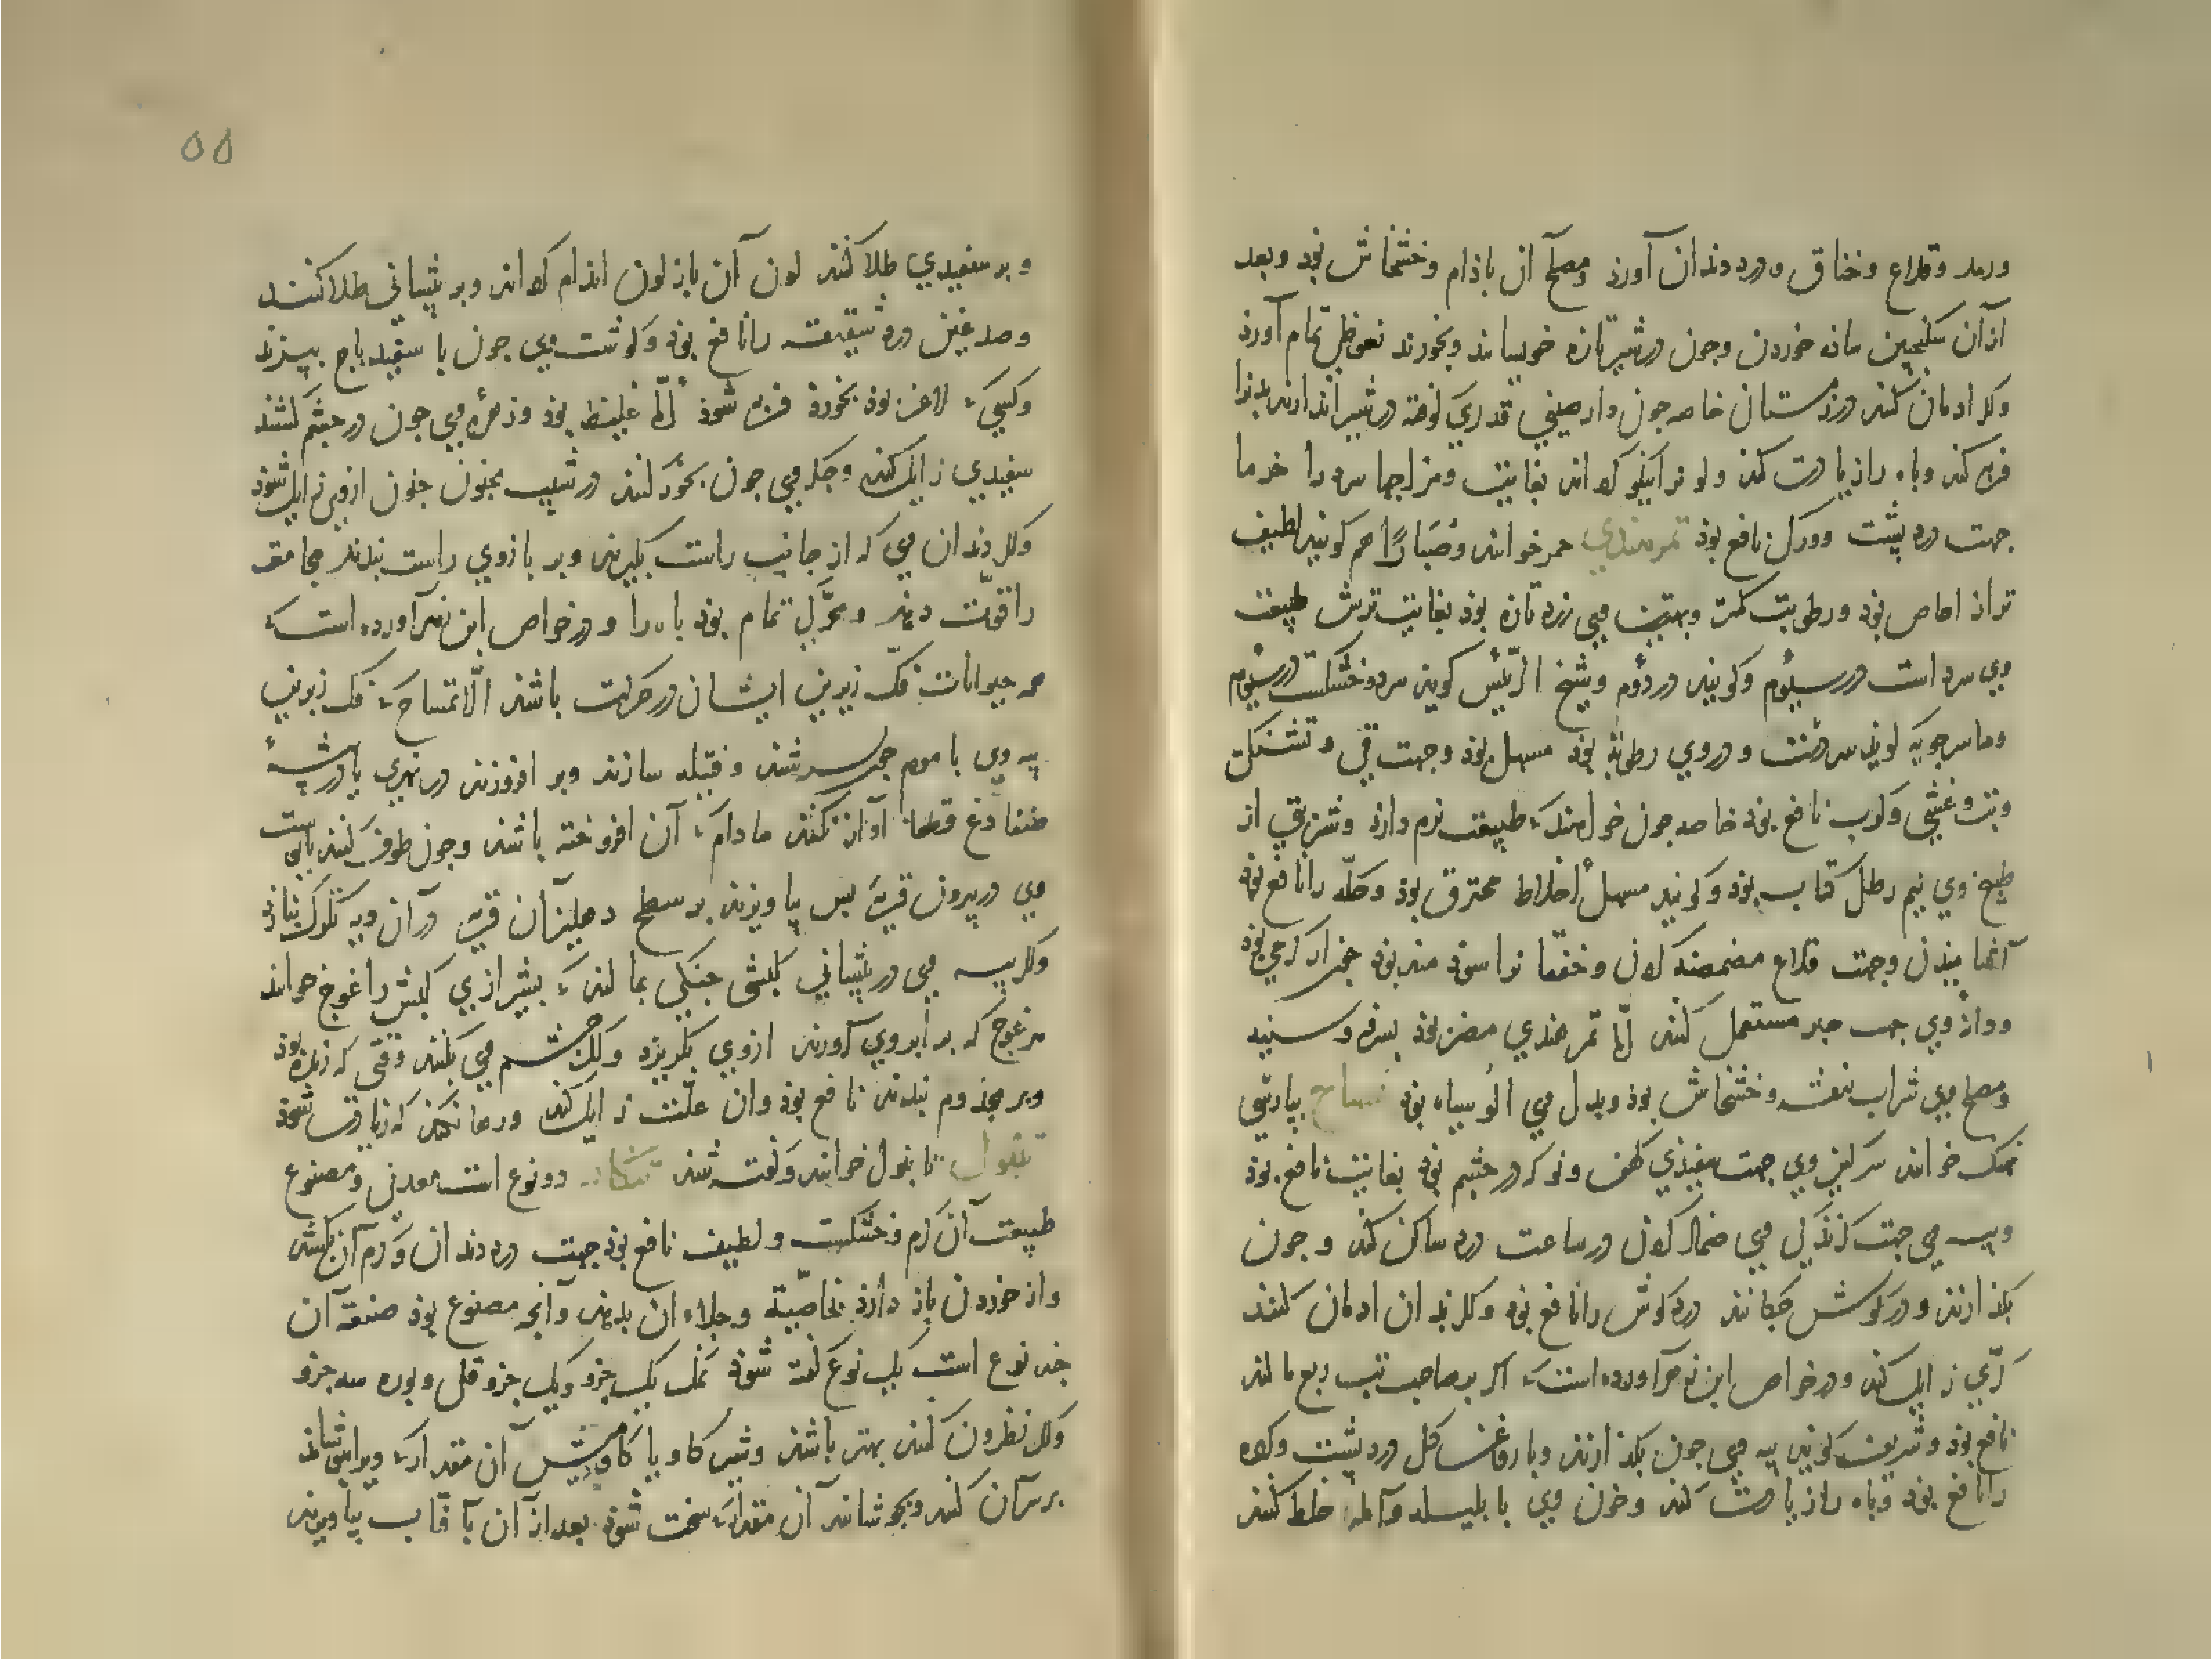 ورمد وقلاع وخناق ودرد دندان آورد ومصلح آن باذام وخشخاش بوذ وبعد
از آن سکنجبین ساده خوردن وجون در شیر تازه خیسانند وبخورند نعوظ تمام آورد
وکر ادمان کنند در زمستان خاصه جون دارصینی قدری کوفته در شیر اندازند بدن را
فربه کند وباه را زیادت کند ولون را نیکو کرداند بغایت ومزاجها سرد را خرما
جهت درد پشت وورک نافع بوذ تمر هندی حمر خوانند وصبارا هم کویند لطیف
تر از اجاص بوذ ورطوبت کمتر وبهترین وی زرد تازه بوذ بغایت ترش طبیعت
وی سرد است در سیوم وکویند در دوم وشیخ الرئیس کوید سرد وخشکست در سیوم
وماسرجویه کوید سردست ودر وی رطوبة بوذ مسهل بوذ وجهت قی وتشنکی
وتب وغشی وکرب نافع بوذ خاصه جون خواهند که طبیعت نرم دارد وشربتی از
طبیخ وی نیم رطل کتاب بوذ وکویند مسهل اخلاط محترق بوذ وحکه را نافع بوذ
آشامیدن وجهت قلاع مضمضه کردن وخفقان را سود مند بوذ جون از کرمی بوذ
ودانه وی جهت جبر مستعمل کنند اما تمر هندی مضر بوذ بسرفه وسینه
ومصلح وی شراب بنفشه وخشخاش بوذ وبدل وی الو سیاه بوذ تمساح بپارسی
نهنک خوانند سرکین وی جهت سفیذی کهن ونو که در چشم بوذ بغایت نافع بوذ
وپیه وی جهت کزندکی وی ضماد کردن در ساعت درد ساکن کند وجون
بکذارند ودر کوش جکانند درد کوش را نافع بوذ وکر بدان ادمان کنند
کری زایل کند ودر خواص ابن زهر آورده است که اکر بر صاحب تب ربع مالند
نافع بوذ وشریف کوید پیه وی جون بکذارند وبا روغن کل درد پشت وکرده
را نافع بوذ وباه را زیادت کند وخون وی با بلیله وآمله خلط کنند
۵۵
وبر سفیدی طلا کنند لون آن باز لون اندام کرداند وبر پیشانی طلا کنند
وصدغین درد شقیقه را نافع بوذ وکوشت وی جون با سفید باج بپزند
وکسی که لاغر بوذ بخورد فربه شوذ اما غلیظ بوذ وزهره وی جون در جشم کشند
سفیدی زایل کند وجکر وی جون بخور کنند در شیب مجنون جنون ازوی زایل شوذ
وکر دندان وی که از جانب راست بکیرند وبر بازوی راست بندند مجامعت
را قوت دهد ومحرک تمام بوذ باه را ودر خواص ابن زهر آورده است که
همه حیوانات فک زیرین ایشان در حرکت باشد الا تمساح که فک زبرین
پیه وی با موم جون سرشند وفتیله سازند وبر افروزند در نهری یا در بیشه
ضفادع قطعا آواز نکنند مادام که آن افروخته باشد وجون طوف کنند بپوست
وی در پیرون قریه پس بیاویزند بر سطح دهلیز آن قریه در آن دیه تکرک نبارد
وکر پیه وی در پیشانی کبش جنکی بمالند بشیرازی کبش را غوج خوانند
هر غوج که برابر وی آورند ازوی بکریزد وکر جشم وی بکنند وقتی که زنده بوذ
وبر مجذوم بندند نافع بوذ وآن علت زایل کند ورها نکند که زیادت شوذ
تنبول تانبول خوانند وکفته شذ تنکار دو نوع است معدنی ومصنوع
طبیعت آن کرم وخشکست ولطیف نافع بوذ جهت درد دندان وکرم آن بکشد
واز خوردن باز دارد بخاصیة وجلاء آن بدهد وآنچه مصنوع بوذ صنعة آن
جند نوع است یک نوع کفته شوذ نمک یک جزو ویک جزو قلی وبوره سه جزو
وکر نطرون کنند بهتر باشد وشیر کاو یا کاومیش آن مقدار که ویرا بپوشاند
بر سر آن کنند وبجوشانند آن مقدار که سخت شوذ بعد از آن بآفتاب بیاویزند